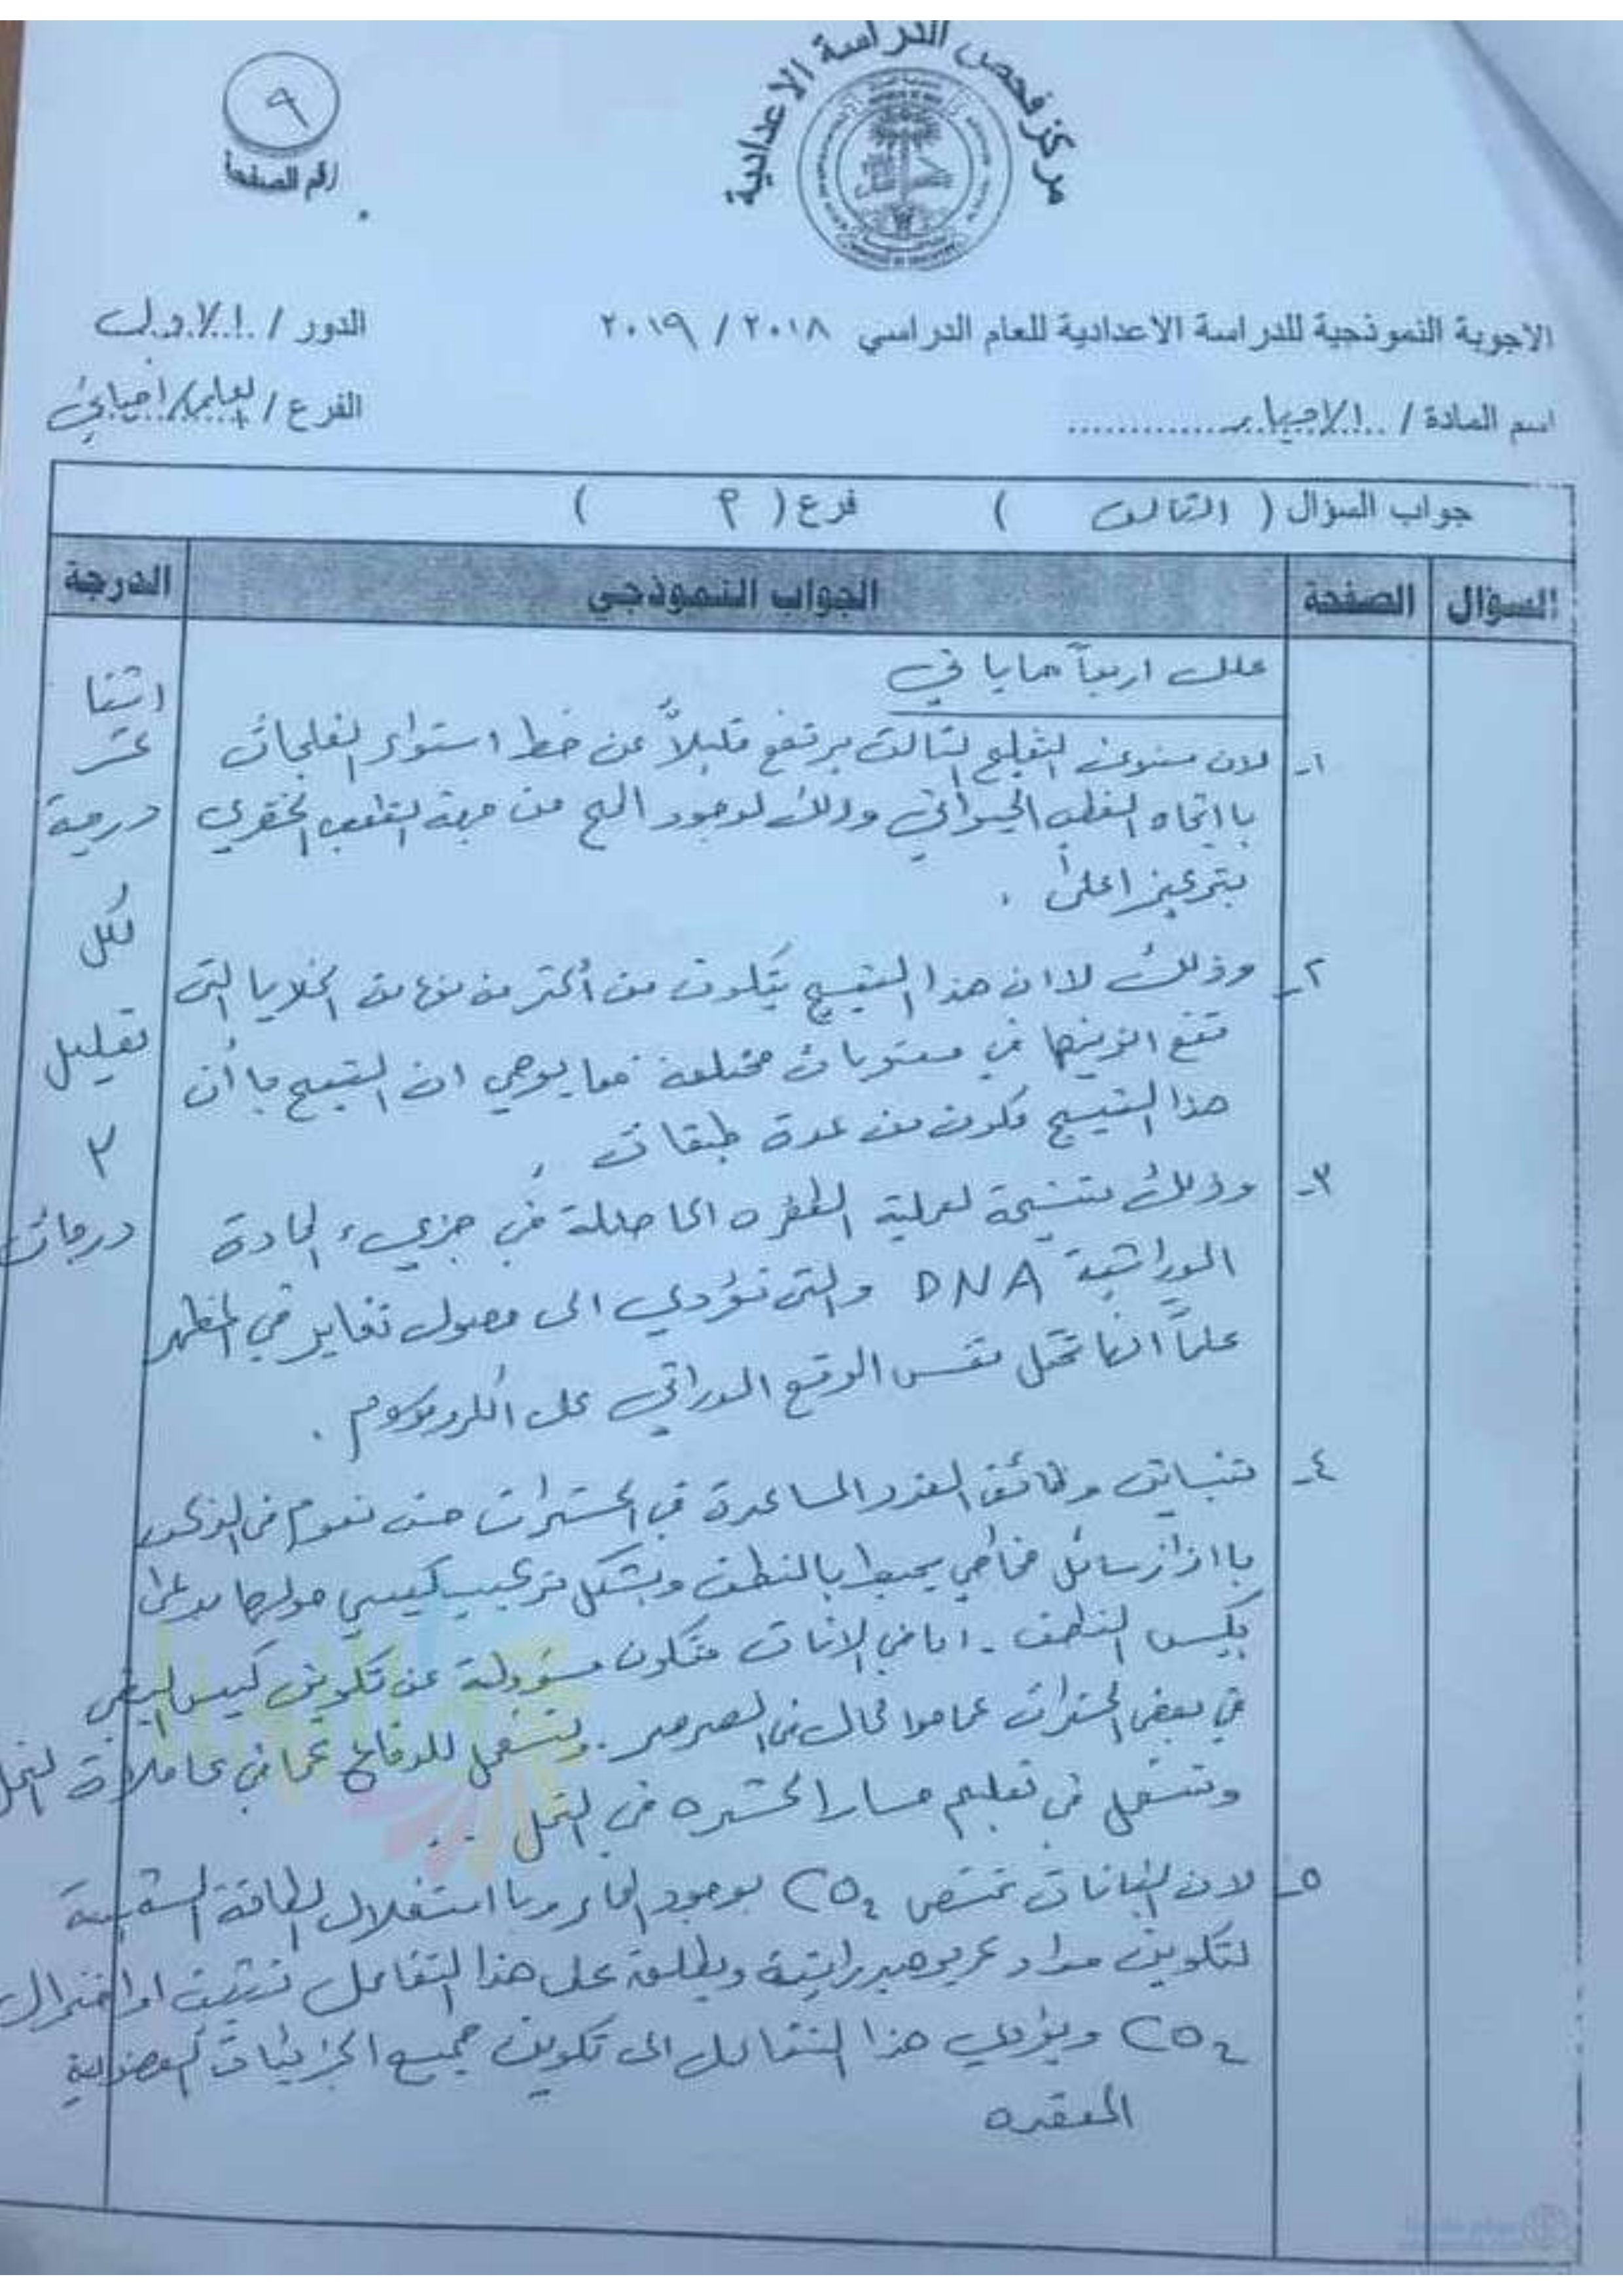 مركز فحص الدراسة الاعدادية
٩
رقم الصفحة
الاجوبة النموذجية للدراسة الاعدادية للعام الدراسي ٢٠١٨ / ٢٠١٩
الدور / الاول
اسم المادة / الاحياء
الفرع / العلمي/احيائي
جواب السؤال ( الثالث ) فرع ( ٩ )
السؤال الصفحة الجواب النموذجي الدرجة
علل اربعاً مما يأتي
١- لان مستوى التفلج الثالث يرتفع قليلاً عن خط استواء الفلجات
بااتجاه القطب الحيواني وذلك لوجود المح من جهة القطب الخضري
بتركيز اعلى .
٢- وذلك لاان هذا النسيج يتكون من أكثر من نوع من الخلايا التي
تقع انويتها في مستويات مختلفة مما يوحي ان النسيج باأن
هذا النسيج مكون من عدة طبقات .
٣- وذلك نتيجة لعملية الطفره الحاصلة في جزيء المادة
الوراثية DNA والتي تؤدي الى حصول تغاير في المظهر
علماً انها تحتل نفس الموقع الوراثي على الكروموسوم .
٤- تتباين وظائف الغدد المساعدة في الحشرات حيث تقوم في الذكور
باافراز سائل مخاطي يحيط بالنطف ويشكل تركيب كيسي حولها يدعى
بكيس النطف . اما في الاناث فتكون مسؤولة عن تكوين كيس البيض
في بعض الحشرات كما هو الحال في الصرصر . وتستعمل للدفاع كما في عاملات النحل
وتستعمل في تعليم مسار الحشره في النمل ..
٥- لان النباتات تمتص CO2 بوجود الماء وبااستغلال الطاقة الشمسية
لتكوين مواد كربوهيدراتية ويطلق على هذا التفاعل تثبيت او اختزال
CO2 ويؤدي هذا التفاعل الى تكوين جميع الجزيئات العضوية
المعقده
اثنا
عشر
درجة
لكل
تعليل
٣
درجات